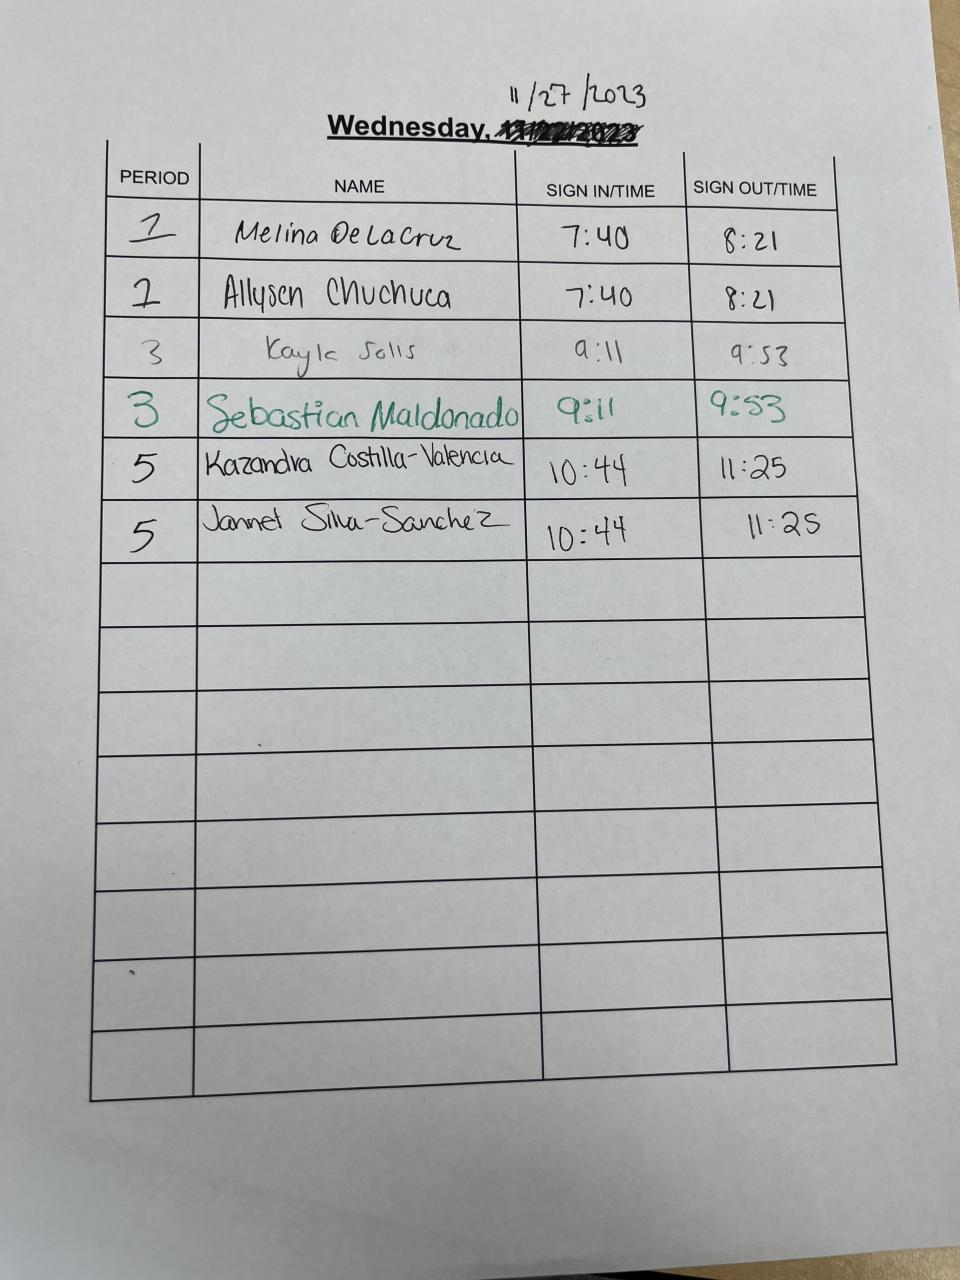 11/27/2023
Wednesday,
PERIOD NAME SIGN IN/TIME SIGN OUT/TIME
1 Melina DeLaCruz 7:40 8:21
1 Allyson Chuchuca 7:40 8:21
3 Kayla Solis 9:11 9:53
3 Sebastian Maldonado 9:11 9:53
5 Kazandra Costilla-Valencia 10:44 11:25
5 Jannet Silva-Sanchez 10:44 11:25